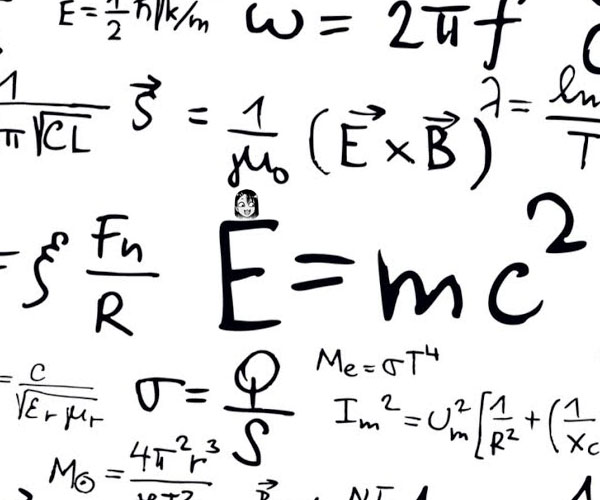 E = 1/2 ħ√k/m
ω = 2πf
1/π√CL
S⃗ = 1/μ₀ (E⃗ × B⃗)
λ = ln/T
= ξ Fn/R
E = mc²
= c/√εr μr
σ = Q/S
Me = σT⁴
Im² = Um² [1/R² + (1/Xc
M⊙ = 4π²r³